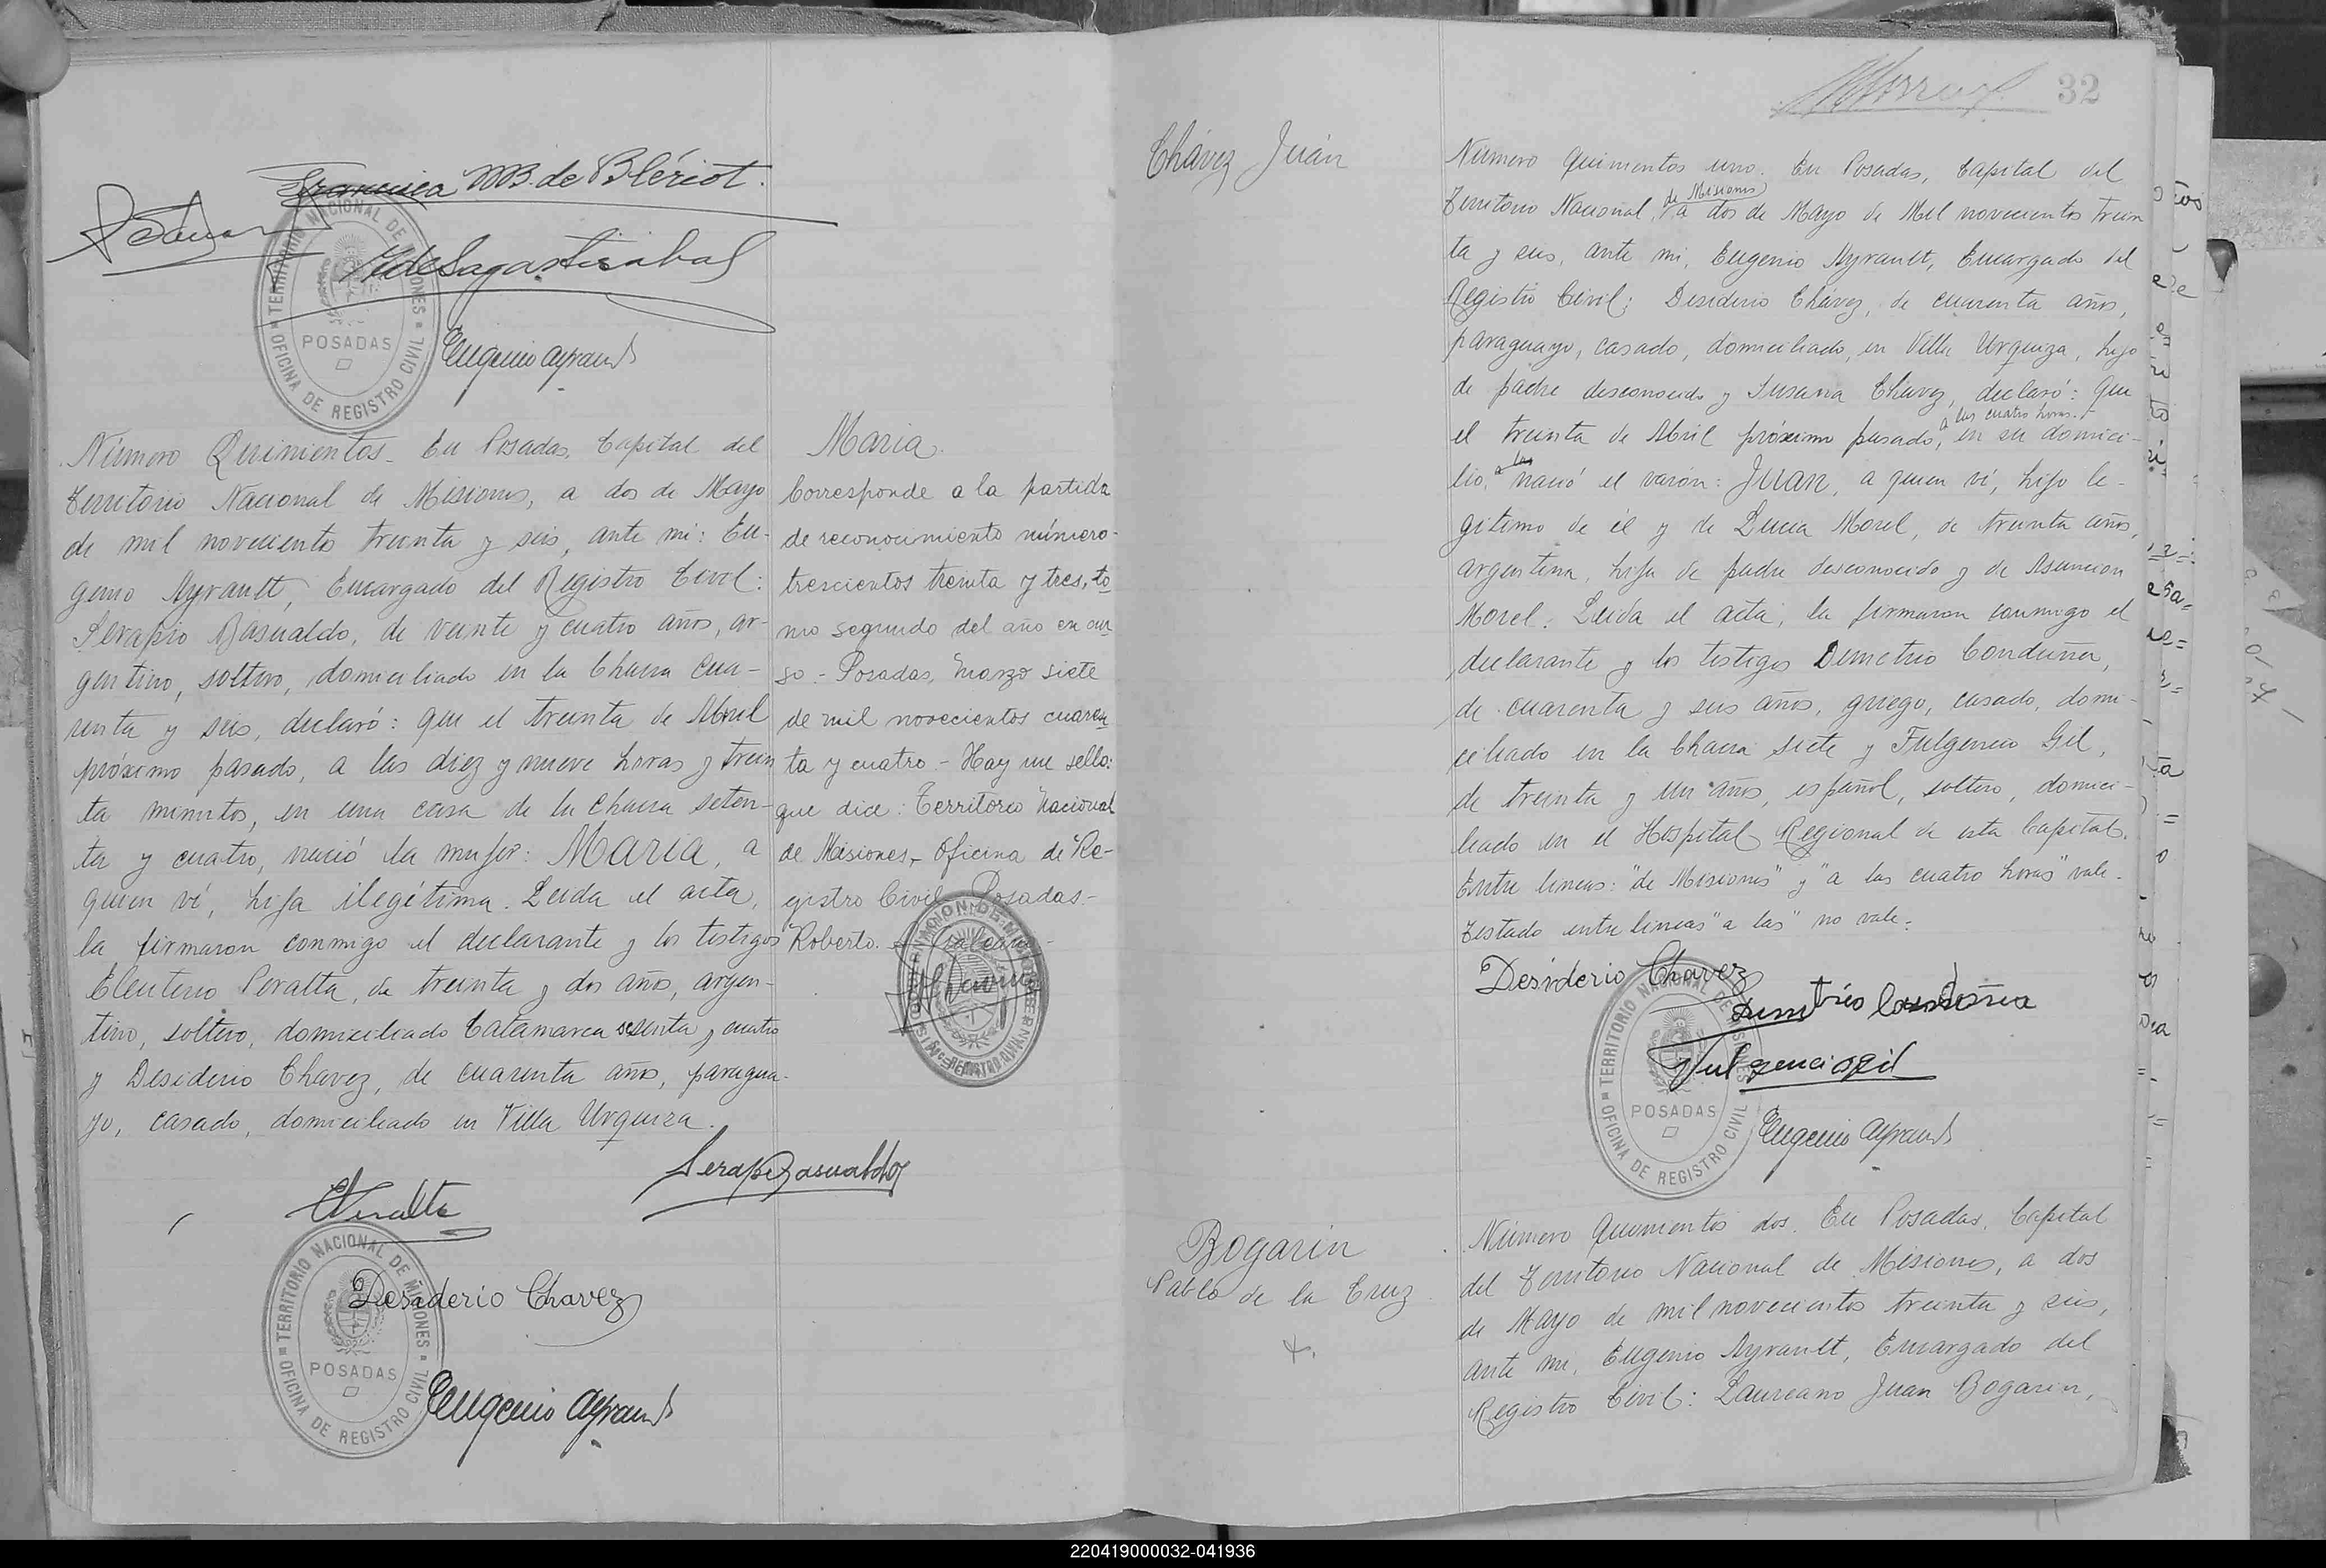 Francisca M.B. de Blériot.
M de Sagastizabal
TERRITORIO NACIONAL DE MISIONES
OFICINA DE REGISTRO CIVIL
POSADAS
Eugenio Ayrault
Número Quinientos. En Posadas, Capital del
Territorio Nacional de Misiones, a dos de Mayo
de mil novecientos treinta y seis, ante mi: Eu-
genio Ayrault, Encargado del Registro Civil:
Serapio Basualdo, de veinte y cuatro años, ar-
gentino, soltero, domiciliado en la Chacra cua-
renta y seis, declaró: que el treinta de Abril
próximo pasado, a las diez y nueve horas y trein
ta minutos, en una casa de la Chacra seten-
ta y cuatro, nació la mujer: MARÍA, a
quien ví, hija ilegítima. Leida el acta,
la firmaron conmigo el declarante y los testigos
Eleuterio Peralta, de treinta y dos años, argen-
tino, soltero, domiciliado Catamarca sesenta y cuatro
y Desiderio Chavez, de cuarenta años, paragua-
yo, casado, domiciliado en Villa Urquiza.
Serapio Basualdo
E Peralta
TERRITORIO NACIONAL DE MISIONES
OFICINA DE REGISTRO CIVIL
POSADAS
Desiderio Chavez
Eugenio Ayrault
Maria.
Corresponde a la partida
de reconocimiento número-
trescientos treinta y tres, to
mo segundo del año en cur
so.- Posadas, Marzo siete
de mil novecientos cuaren
ta y cuatro.- Hay un sello:
que dice: Territorio Nacional
de Misiones,- Oficina de Re-
gistro Civil - Posadas.-
Roberto.
32
Chávez Juán
Número Quinientos uno. En Posadas, Capital del
Territorio Nacional, de Misiones a dos de Mayo de Mil novecientos trein
ta y seis, ante mi, Eugenio Ayrault, Encargado del
Registro Civil; Desiderio Chávez, de cuarenta años,
paraguayo, casado, domiciliado, en Villa Urquiza, hijo
de padre desconocido y Susana Chavez, declaró: que
el treinta de Abril próximo pasado, a las cuatro horas.- en su domici-
lio, a las nació el varón: JUAN, a quien ví, hijo le-
gitimo de él y de Lucia Morel, de treinta años,
argentina, hija de padre desconocido y de Asuncion
Morel. Leida el acta, la firmaron conmigo el
declarante y los testigos Demetrio Conduña,
de cuarenta y seis años, griego, casado, domi-
ciliado en la Chacra siete y Fulgencio Gil,
de treinta y un años, español, soltero, domici-
liado en el Hospital Regional de esta Capital.
Entre lineas: "de Misiones" y "a las cuatro horas" vale.
Testado entre lineas "a las" no vale.
Desiderio Chavez
Fulgencio Gil
TERRITORIO NACIONAL DE MISIONES
OFICINA DE REGISTRO CIVIL
POSADAS
Eugenio Ayrault
Bogarin
Pablo de la Cruz
Número Quinientos dos. En Posadas, Capital
del Territorio Nacional de Misiones, a dos
de Mayo de mil novecientos treinta y seis,
ante mi, Eugenio Ayrault, Encargado del
Registro Civil: Laureano Juan Bogarin,
220419000032-041936